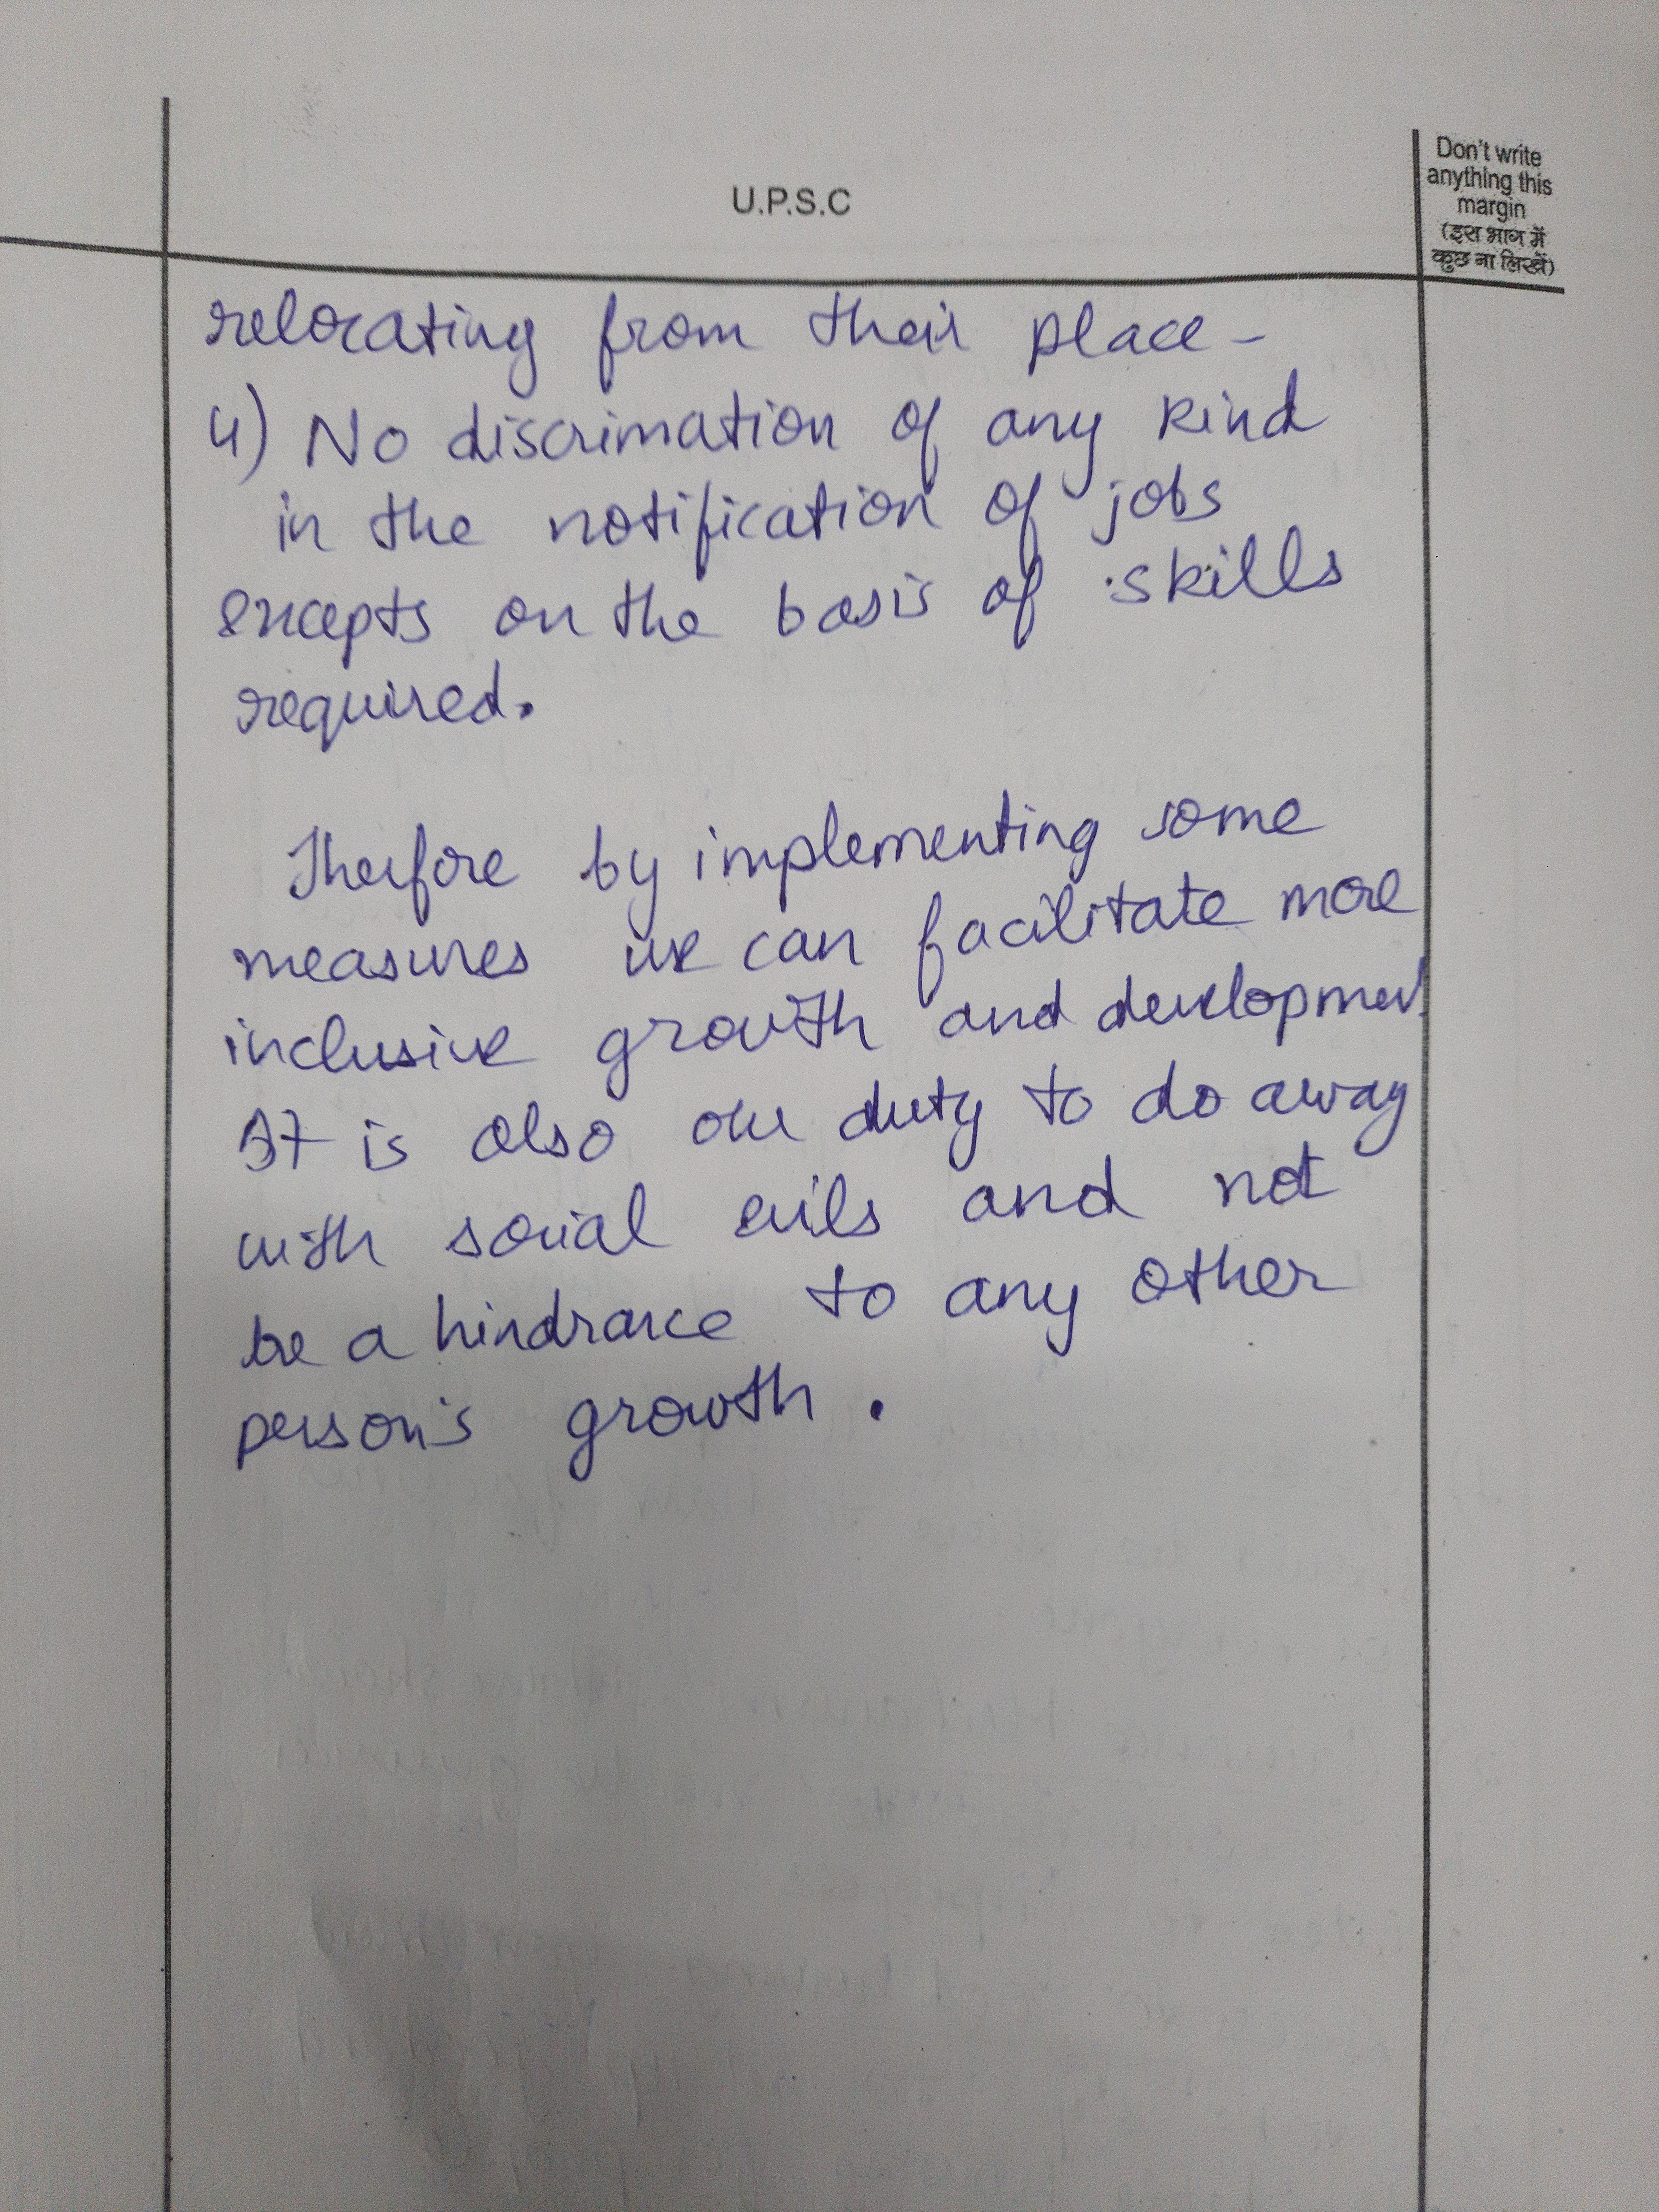 U.P.S.C
Don't write
anything this
margin
(इस भाग में
कुछ ना लिखें)
relocating from their place -
4) No discrimation of any kind
in the notification of jobs
excepts on the basis of skills
required.
Therfore by implementing some
measures we can facilitate more
inclusive growth and development
It is also our duty to do away
with social evils and not
be a hindrance to any other
person's growth.